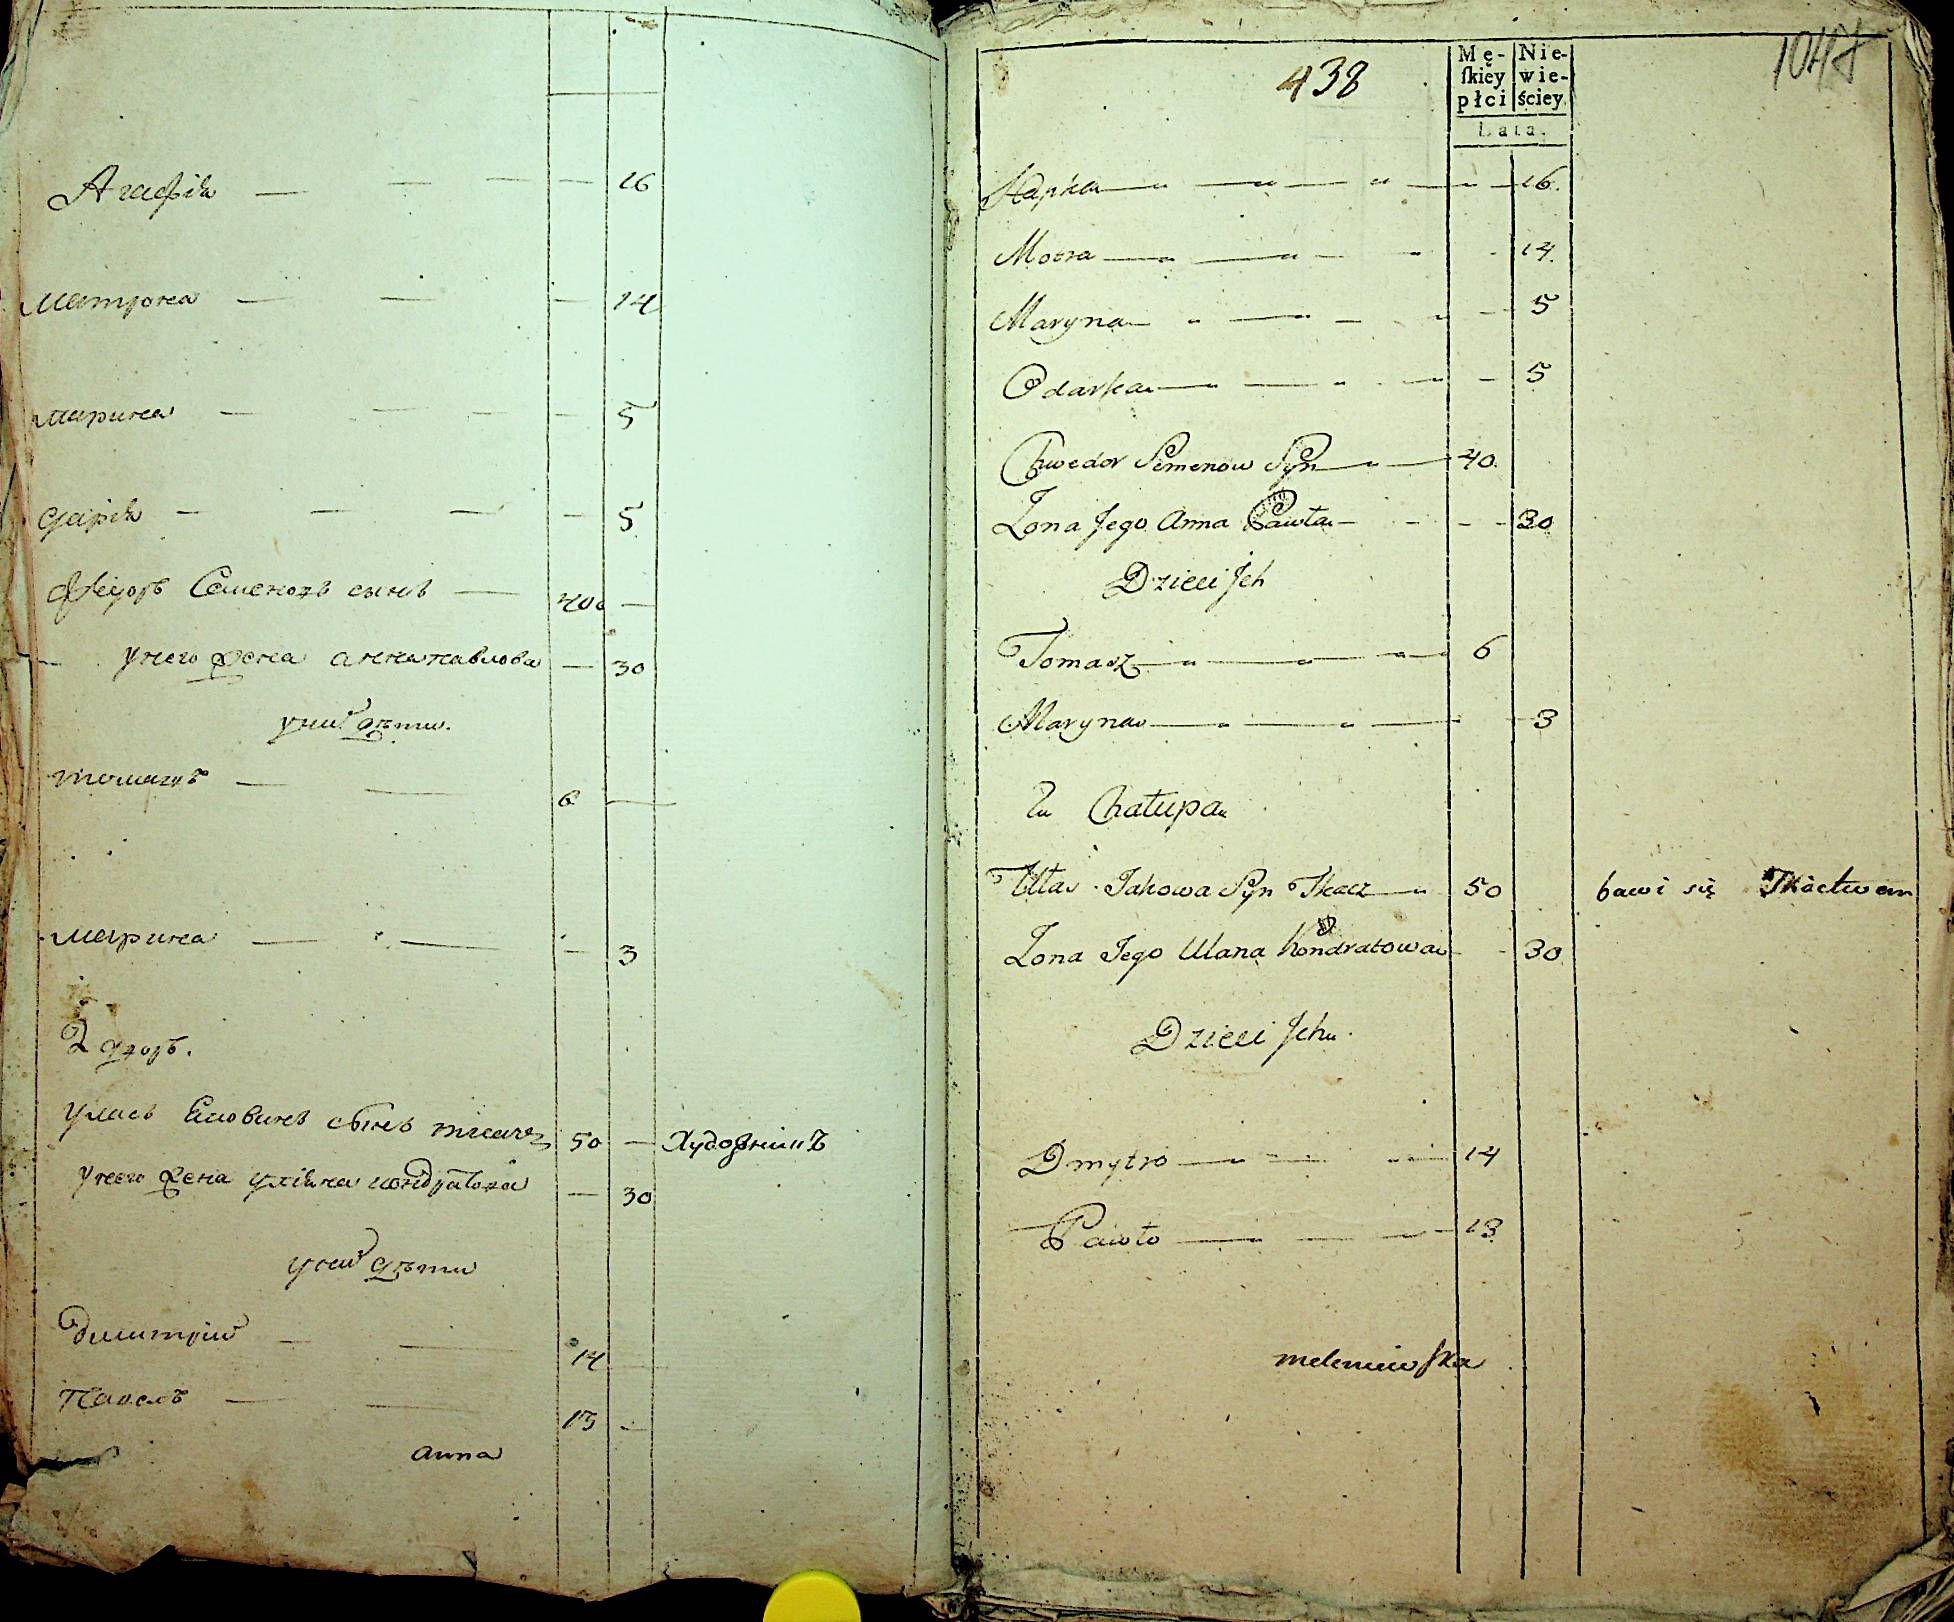 Агафія — — — — 16
матрона — — — 14
марина — — — — 5
дарія — — — — 5
Ѳеѵдоръ Семеновъ сынъ — 40 —
у него жена анна павлова — 30
у них дѣти.
томашъ — — 6 —
марина — — — 3
2 дворъ.
уласъ Екововъ сынъ ткачъ 50 — Художникъ
у него жена уліяна кондратова — 30
у них дѣти
димитрій — — 14 —
Павелъ — — 13 —
anna
438
1048
Mę-ſkiey płci
Nie-wie-ściey
Lata.
Hapka 16.
Motra 14.
Maryna 5
Odarka 5
Chwedor Semenow Syn 40.
Zona Jego Anna Pawła 30
Dzieci Jch
Tomasz 6
Maryna 3
2a Chałupa
Ułas Jakowa Syn Tkacz 50 bawi się Tkactwem
Zona Jego Ulana Kondratowa 30
Dzieci Jch
Dmytro 14
Pawło 13